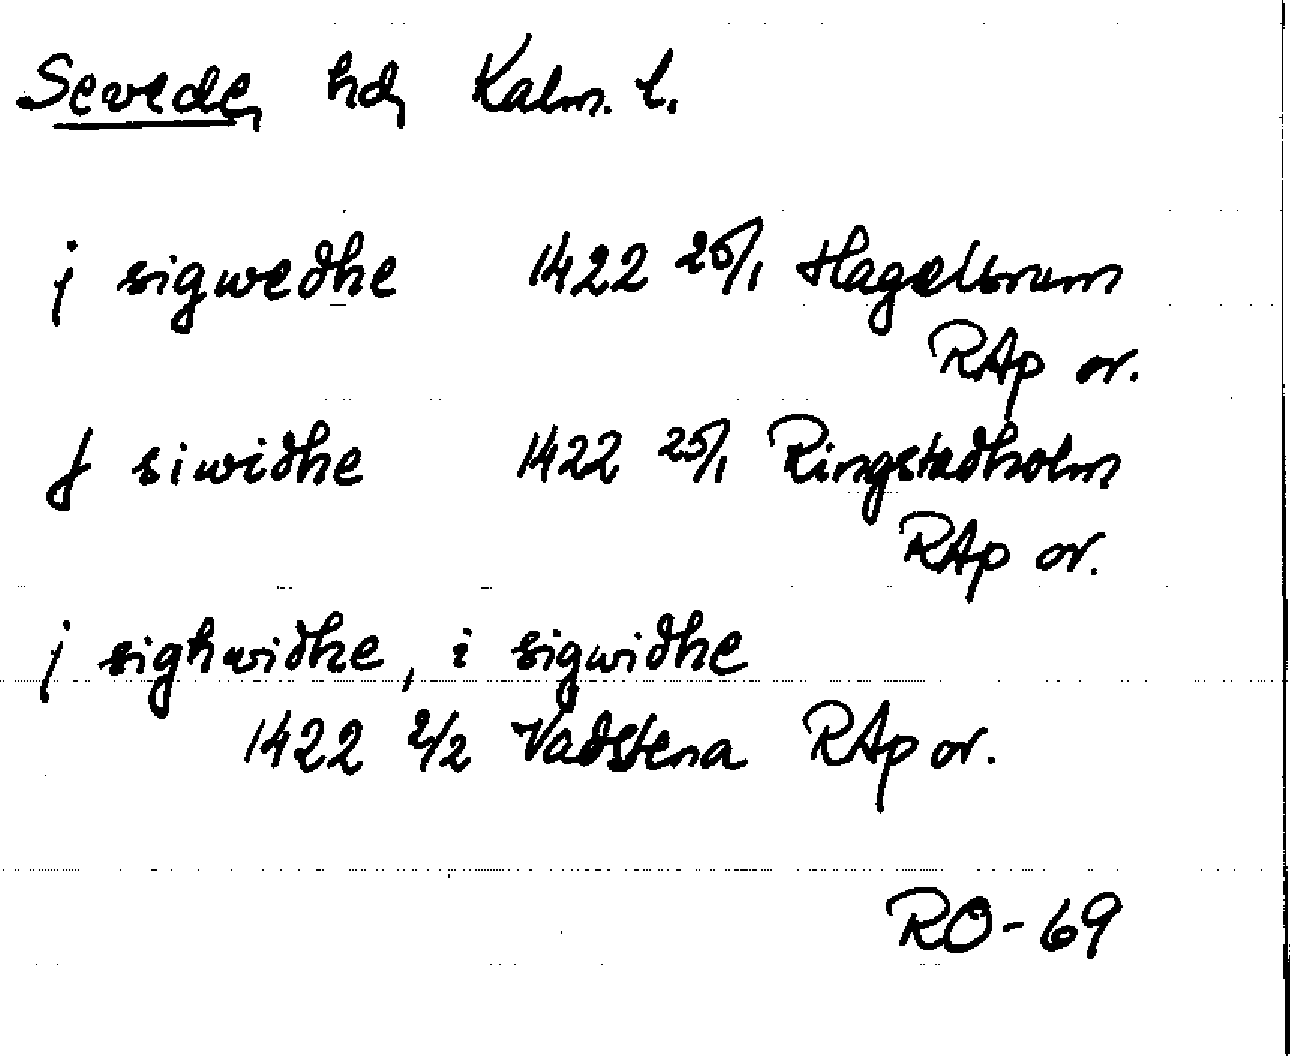 Sevede, hd, Kalm. l.
j sigwedhe 1422 25/1 Hagelsrum
RAp or.
J siwidhe 1422 25/1 Ringstadholm
RAp or.
j sighwidhe, i sigwidhe
1422 2/2 Vadstena RAp or.
RO-69